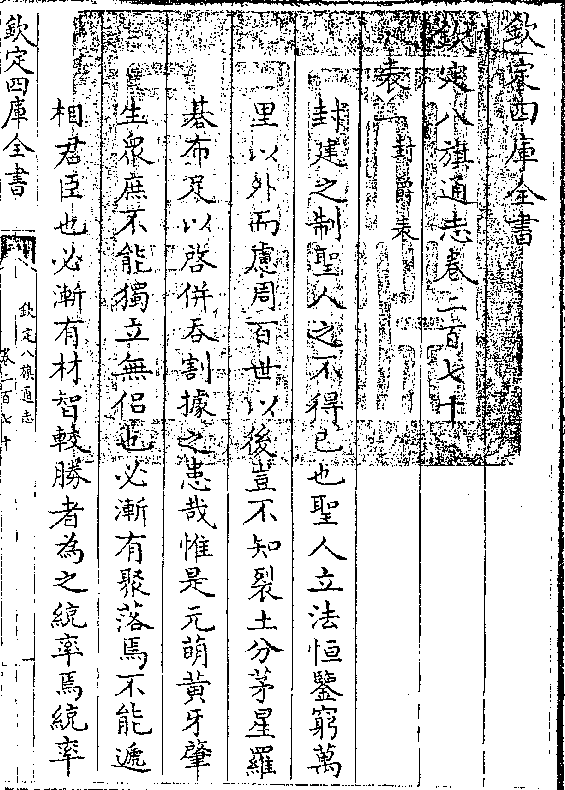 欽定四庫全書
欽定八旗通志卷二百七十
表一 封爵表
封建之制聖人之不得已也聖人立法恒鑒窮萬
里以外而慮周百世以後豈不知裂土分茅星羅
棊布足以啓併吞割據之患哉惟是元萌黃牙肇
生衆庶不能獨立無侣也必漸有聚落焉不能遞
相君臣也必漸有材智較勝者為之統率焉統率
欽定四庫全書
欽定八旗通志
卷二百七十
一